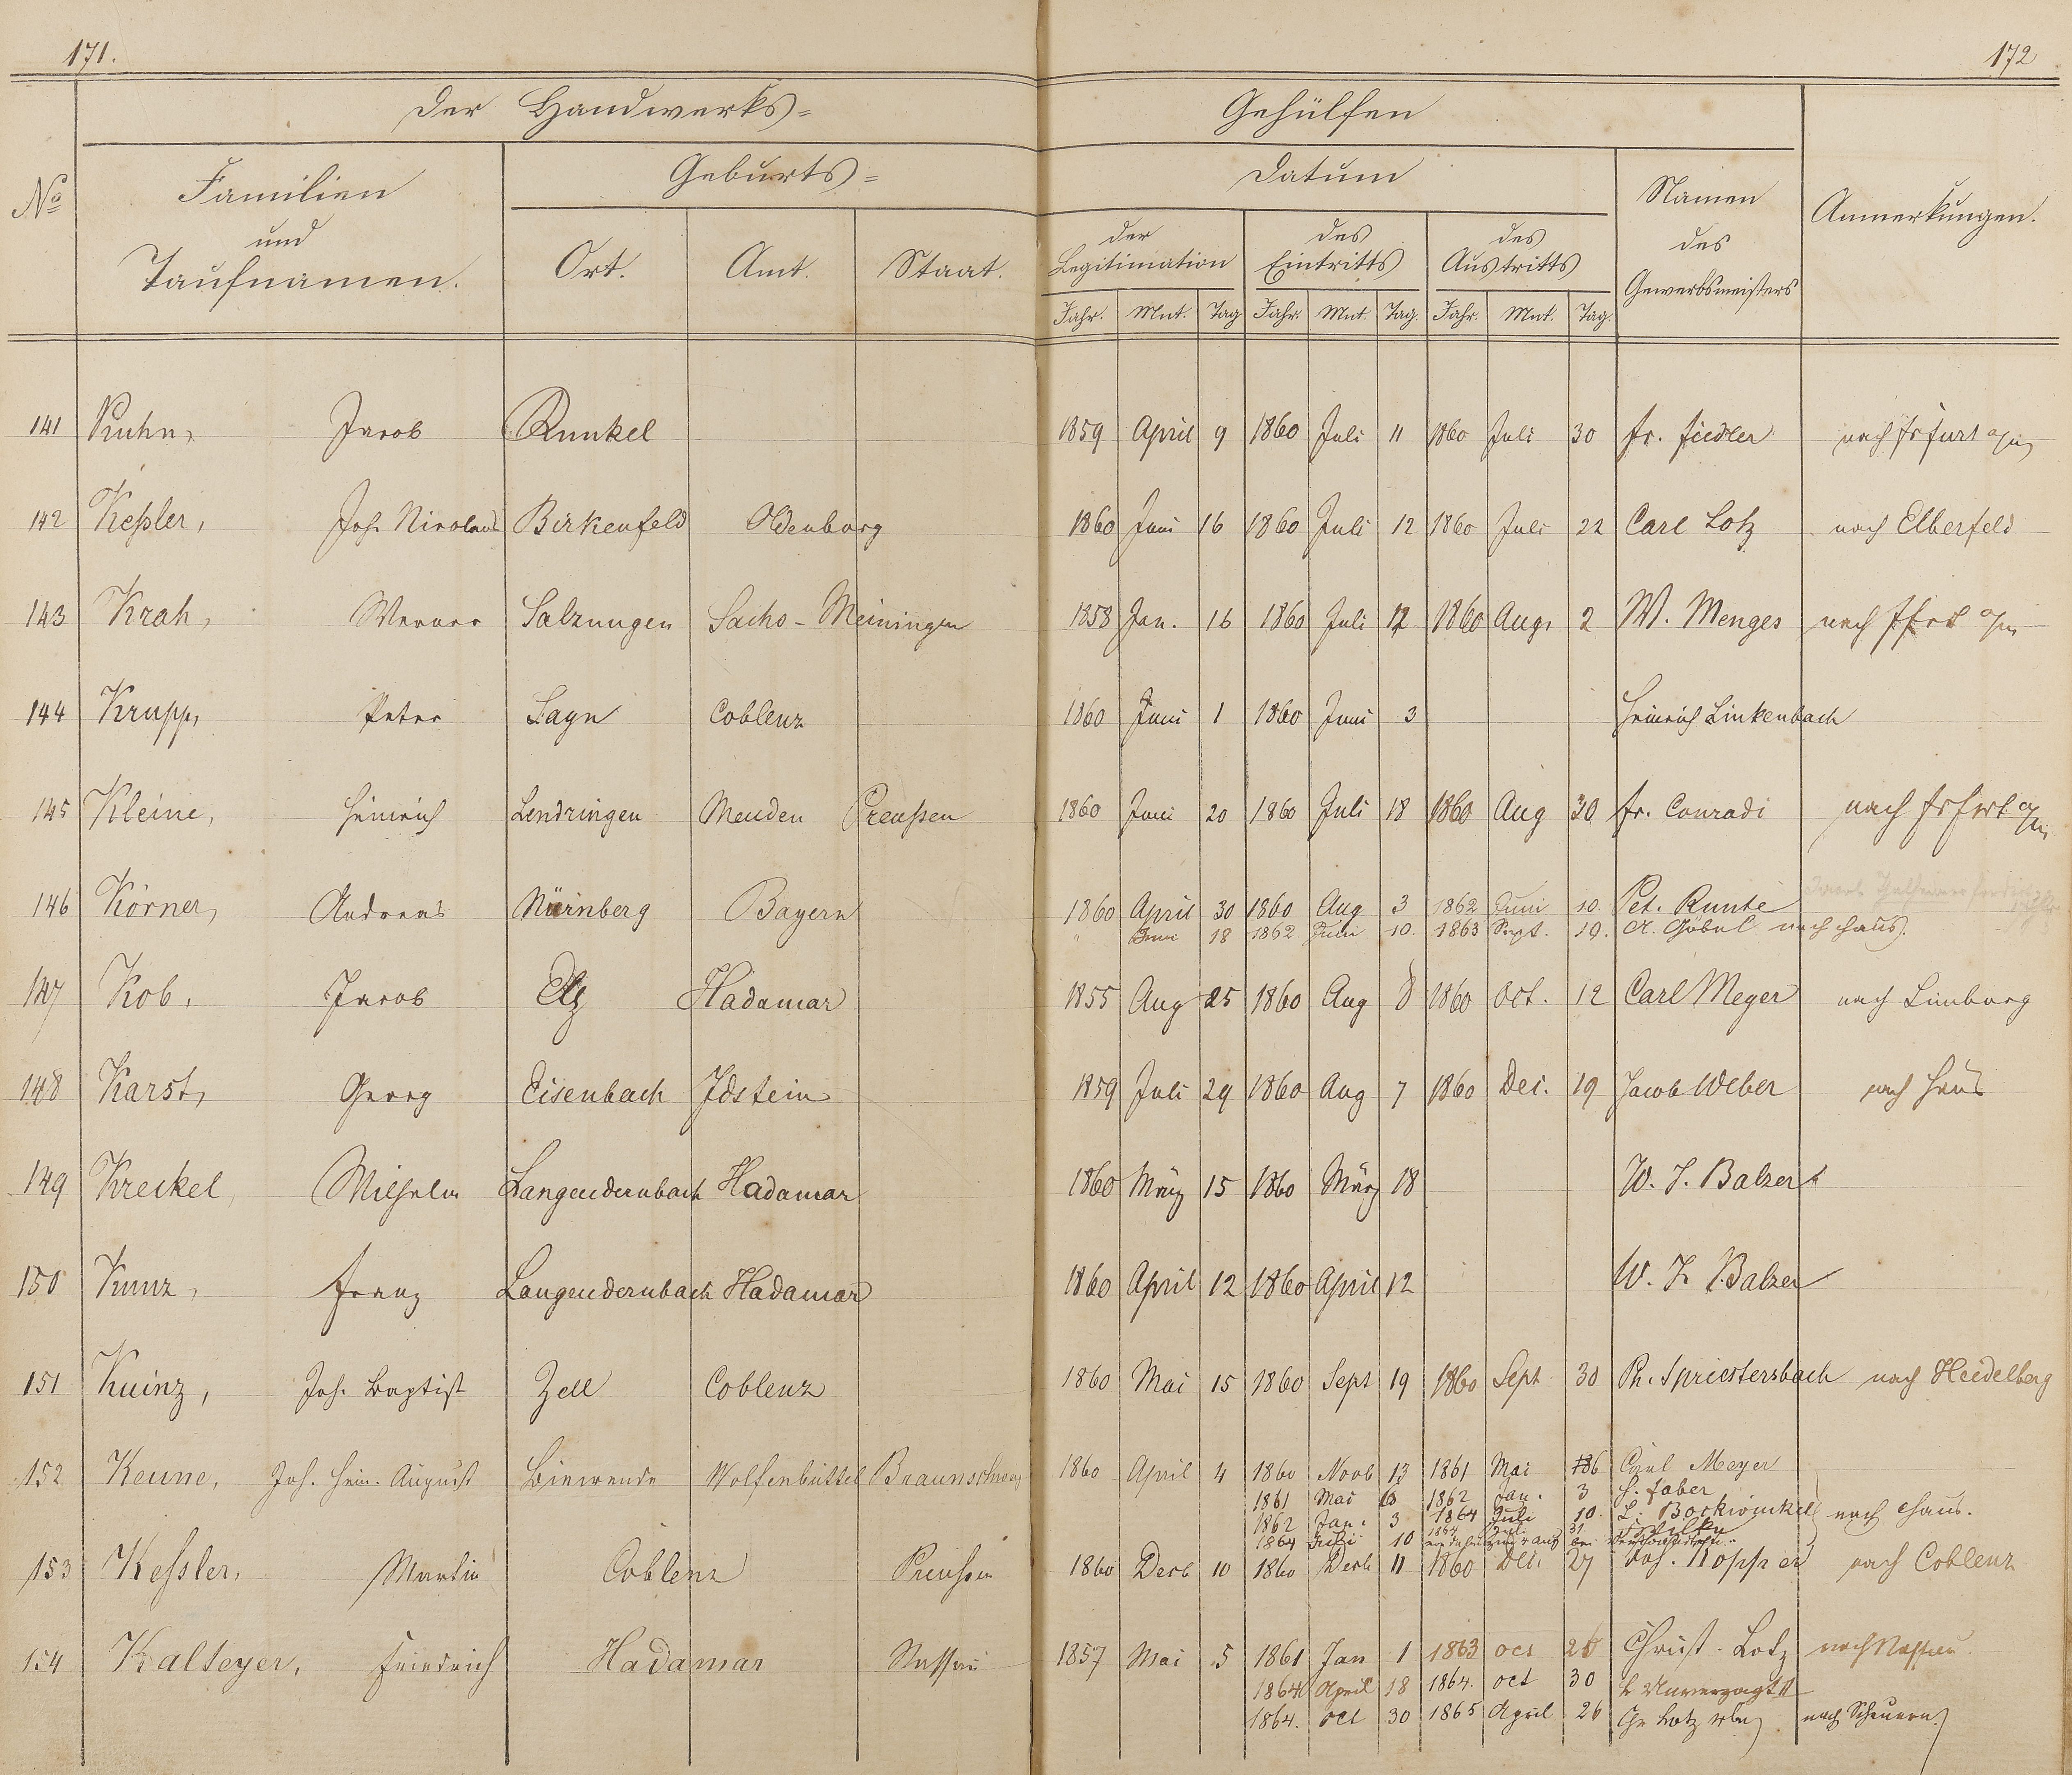 171.
172
Der Handwerks= Gehülfen
No
Familien und Taufnamen.
Geburts=
Ort. Amt. Staat.
Datum
der Legitimation
des Eintritts
des Austritts
Jahr. Mnt. Tag Jahr. Mnt. Tag. Jahr. Mnt. Tag.
Namen des Gewerbsmeisters
Anmerkungen.
141 Kuhn, Jacob Runkel 1859 April 9 1860 Juli 11 1860 Juli 30 Fr. Fiedler nach Frfurt a/m
142 Keßler, Joh. Nicolaus Birkenfeld Oldenburg 1860 Juni 16 1860 Juli 12 1860 Juli 22 Carl Lotz nach Elberfeld
143 Krah, Werner Salzungen Sachs-Meiningen 1858 Jan. 16 1860 Juli 12 1860 Aug. 2 W. Menges nach Ffrt a/m
144 Krupp, Peter Sayn Coblenz 1860 Juni 1 1860 Juni 3 Heinrich Linkenbach
145 Kleine, Heinrich Lendringen Menden Preußen 1860 Juni 20 1860 Juli 18 1860 Aug 30 Fr. Conradi nach Frfrt a/m
146 Körner, Andreas Nürnberg Bayern 1860 April 30 1860 Aug 3 1862 Juni 10. Pet. Runte
" Juni 18 1862 Juni 10. 1863 Sept. 19. A. Göbel nach Haus.
147 Kob, Jacob Elz Hadamar 1855 Aug 25 1860 Aug 8 1860 Oct. 12 Carl Meyer nach Limburg
148 Karst, Georg Eisenbach Idstein 1859 Juli 29 1860 Aug 7 1860 Dec. 19 Jacob Weber nach Haus
149 Kreckel, Wilhelm Langendernbach Hadamar 1860 März 15 1860 März 18 W. J. Balzer
150 Kunz, Franz Langendernbach Hadamar 1860 April 12 1860 April 12 W. J. Balzer
151 Kuinz, Joh. Baptist Zell Coblenz 1860 Mai 15 1860 Sept 19 1860 Sept 30 Ph. Spriestersbach nach Heidelberg
152 Keune, Joh. Hein. August Biewende Wolfenbüttel Braunschweig 1860 April 4 1860 Novb 13 1861 Mai 6 Carl Meyer
1861 Mai 6 1862 Jan. 3 H. Faber
1862 Jan. 3 1864 Juli 10. L. Bockwinkel nach Haus.
1864 Juli 10 1864 Juli 31
153 Keßler, Martin Coblenz Preußen 1860 Decb 10 1860 Decb 11 1860 Dec. 27 Jos. Kopper nach Coblenz
154 Kalteyer, Friedrich Hadamar Nassau 1857 Mai 5 1861 Jan 1 1863 Oct Christ. Lotz nach Nassau
1864 April 18 1864. Oct 30 Unverzagt
1864. Oct 30 1865 April 26 Chr Lotz nach Scheuern.